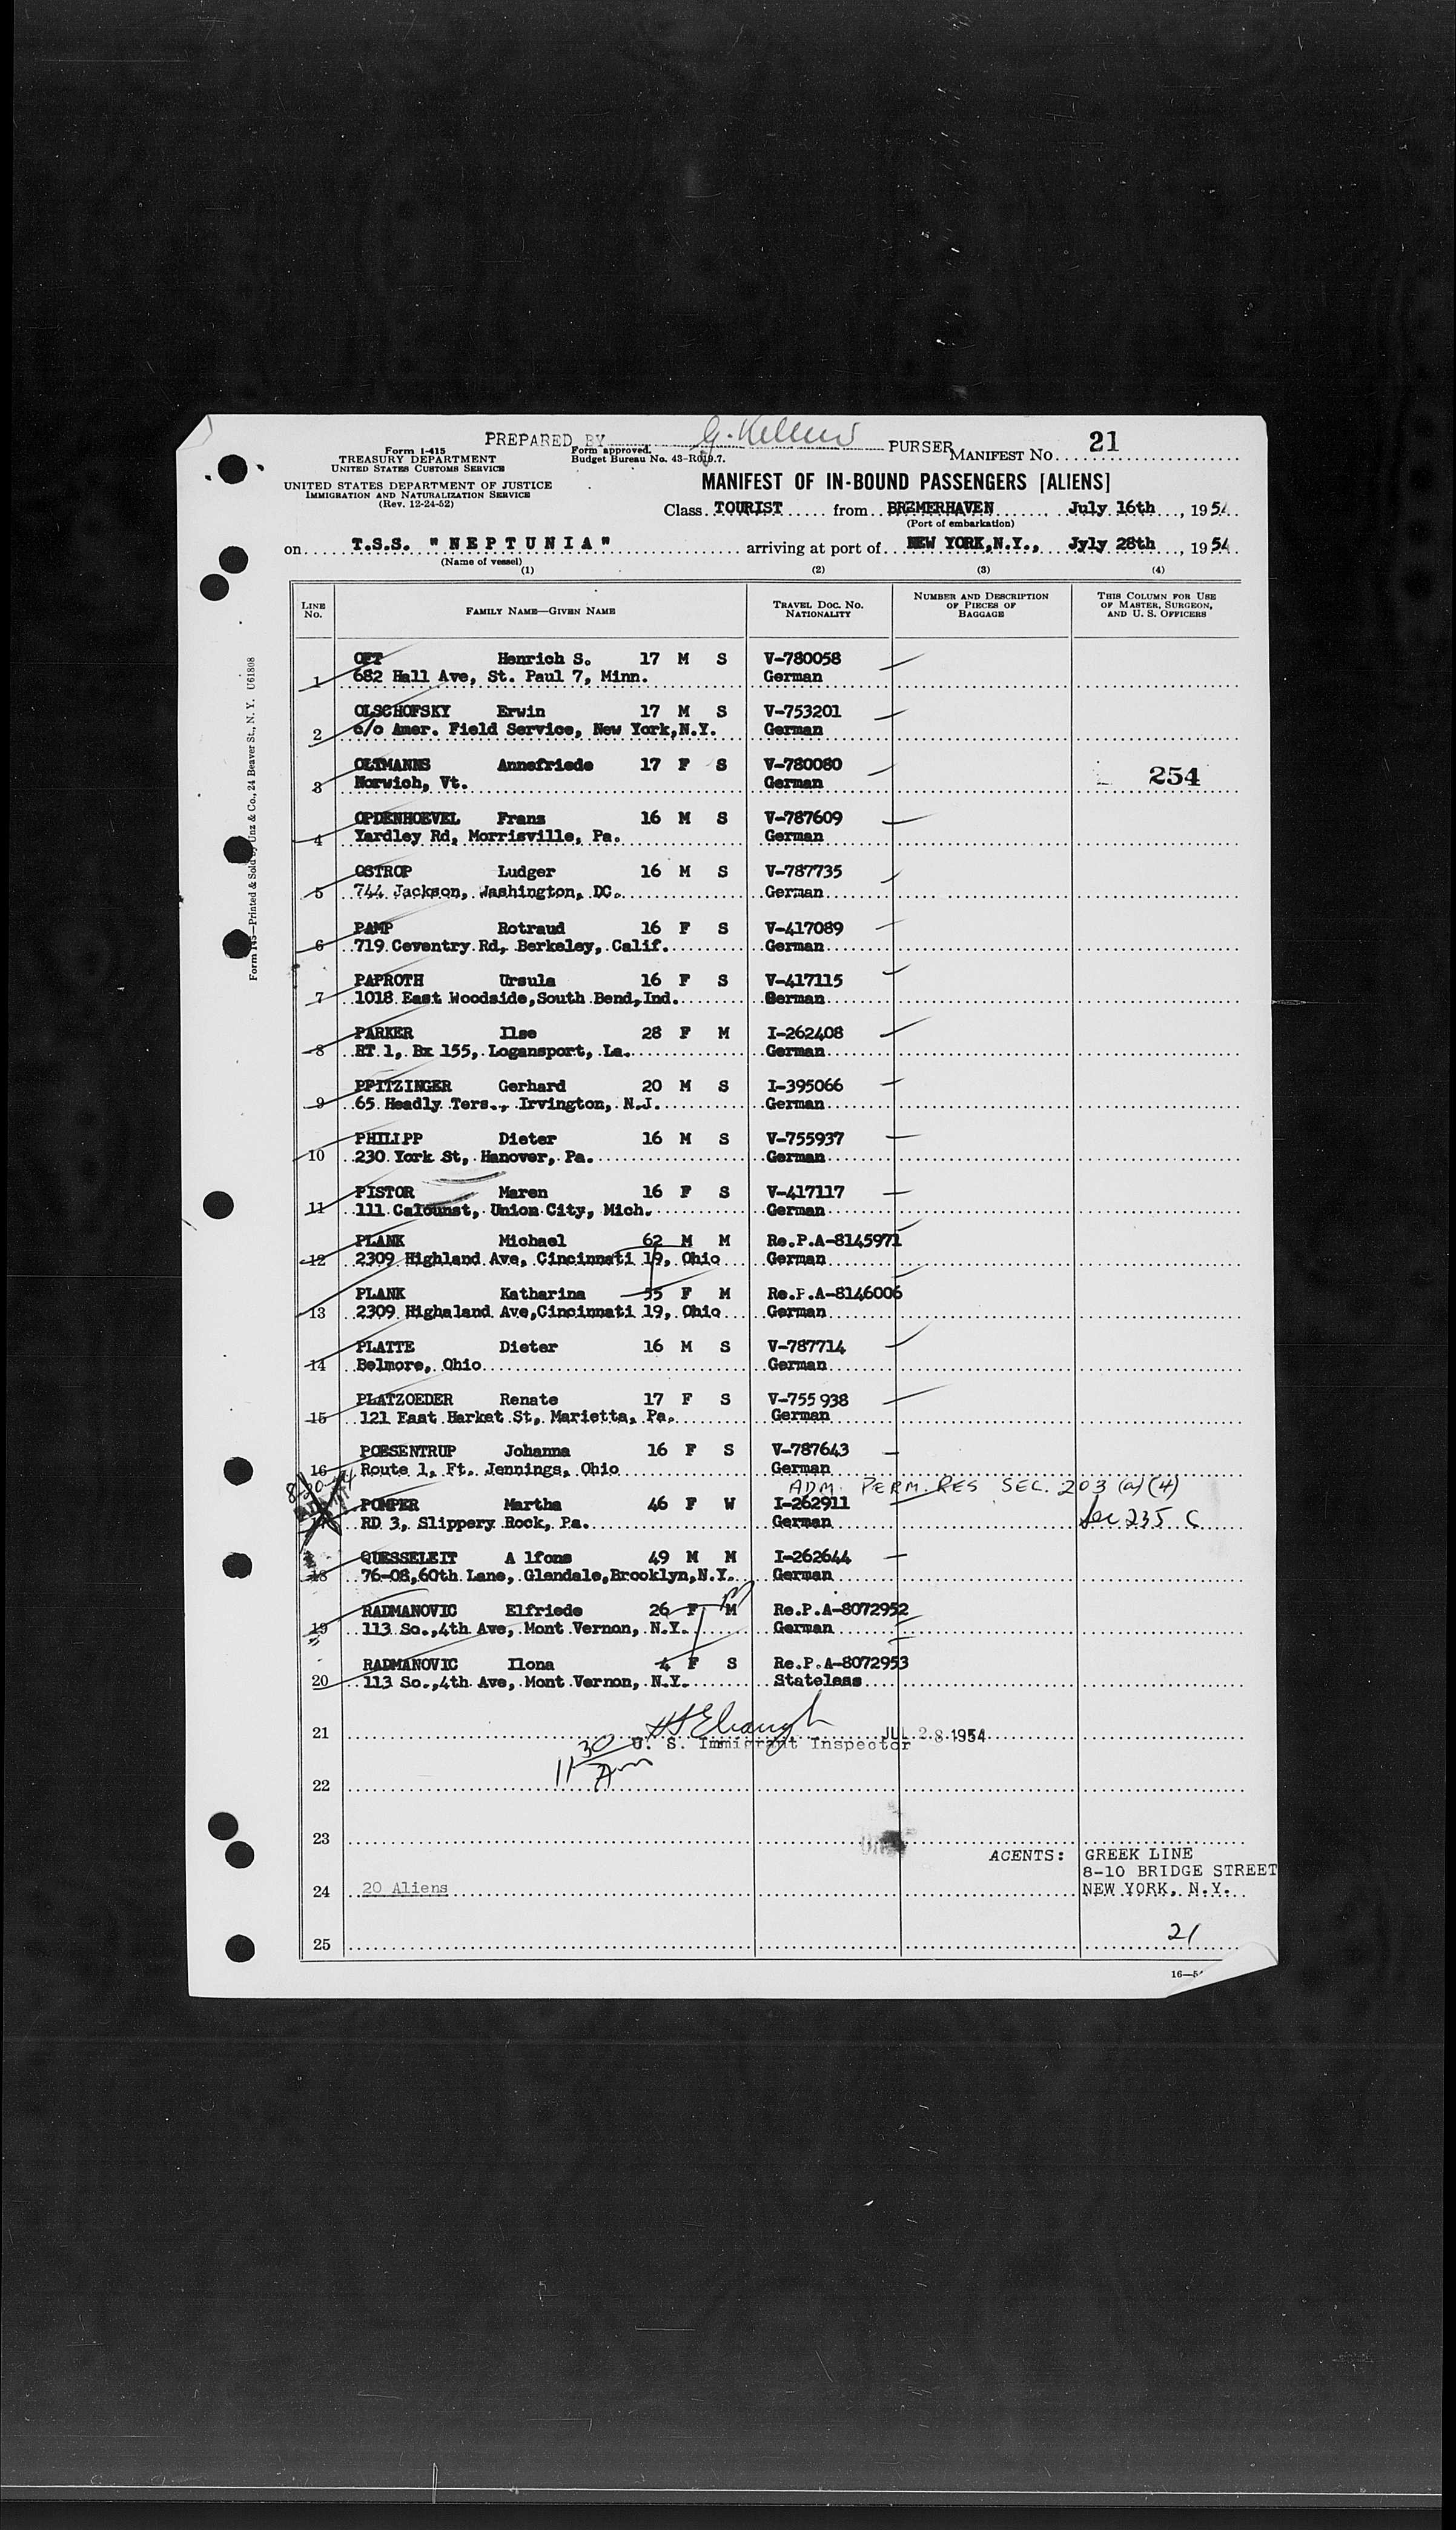 PREPARED BY G. Kellers PURSER MANIFEST No. 21
Form I-415
TREASURY DEPARTMENT
UNITED STATES CUSTOMS SERVICE
Form approved.
Budget Bureau No. 43-R019.7.
UNITED STATES DEPARTMENT OF JUSTICE
IMMIGRATION AND NATURALIZATION SERVICE
(Rev. 12-24-52)
MANIFEST OF IN-BOUND PASSENGERS [ALIENS]
Class TOURIST from BREMERHAVEN July 16th, 1954
(Port of embarkation)
on T.S.S. "NEPTUNIA" arriving at port of NEW YORK,N.Y., Jyly 28th, 1954
(Name of vessel)
(1) (2) (3) (4)
LINE No. FAMILY NAME—GIVEN NAME TRAVEL DOC. No. NATIONALITY NUMBER AND DESCRIPTION OF PIECES OF BAGGAGE THIS COLUMN FOR USE OF MASTER, SURGEON, AND U. S. OFFICERS
1 OFT Henrich S. 17 M S V-780058
682 Hall Ave, St. Paul 7, Minn. German
2 OLSCHOFSKY Erwin 17 M S V-753201
c/o Amer. Field Service, New York,N.Y. German
3 OLTMANNS Annefriede 17 F S V-780080
Norwich, Vt. German 254
4 OPDENHOEVEL Franz 16 M S V-787609
Yardley Rd, Morrisville, Pa. German
5 OSTROP Ludger 16 M S V-787735
744 Jackson, Washington, DC. German
6 PAMP Rotraud 16 F S V-417089
719 Coventry Rd, Berkeley, Calif. German
7 PAPROTH Ursula 16 F S V-417115
1018 East Woodside,South Bend,Ind. German
8 PARKER Ilse 28 F M I-262408
RT 1, Bx 155, Logansport, La. German
9 PFITZINGER Gerhard 20 M S I-395066
65 Headly Ters., Irvington, N.J. German
10 PHILIPP Dieter 16 M S V-755937
230 York St, Hanover, Pa. German
11 PISTOR Maren 16 F S V-417117
111 Calounst, Union City, Mich. German
12 PLANK Michael 62 M M Re.P.A-8145971
2309 Highland Ave, Cincinnati 19, Ohio German
13 PLANK Katharina 55 F M Re.P.A-8146006
2309 Highaland Ave,Cincinnati 19, Ohio German
14 PLATTE Dieter 16 M S V-787714
Belmore, Ohio German
15 PLATZOEDER Renate 17 F S V-755 938
121 East Harket St, Marietta, Pa. German
16 POESENTRUP Johanna 16 F S V-787643
Route 1, Ft. Jennings, Ohio German
ADM. PERM. RES SEC. 203 (a)(4)
17 POMPER Martha 46 F W I-262911
RD 3, Slippery Rock, Pa. German Sec 235 C
18 QUESSELEIT A lfons 49 M M I-262644
76-08,60th Lane, Glendale,Brooklyn,N.Y. German
19 RADMANOVIC Elfriede 26 F M Re.P.A-8072952
113 So.,4th Ave, Mont Vernon, N.Y. German
20 RADMANOVIC Ilona 4 F S Re.P.A-8072953
113 So.,4th Ave, Mont Vernon, N.Y. Stateless
21 JUL 28 1954
U. S. Immigrant Inspector
11 30 Am
22
23
AGENTS: GREEK LINE
8-10 BRIDGE STREET
24 20 Aliens NEW YORK, N.Y.
21
25
16—5
Form I-415—Printed & Sold by Unz & Co., 24 Beaver St., N. Y. U61808